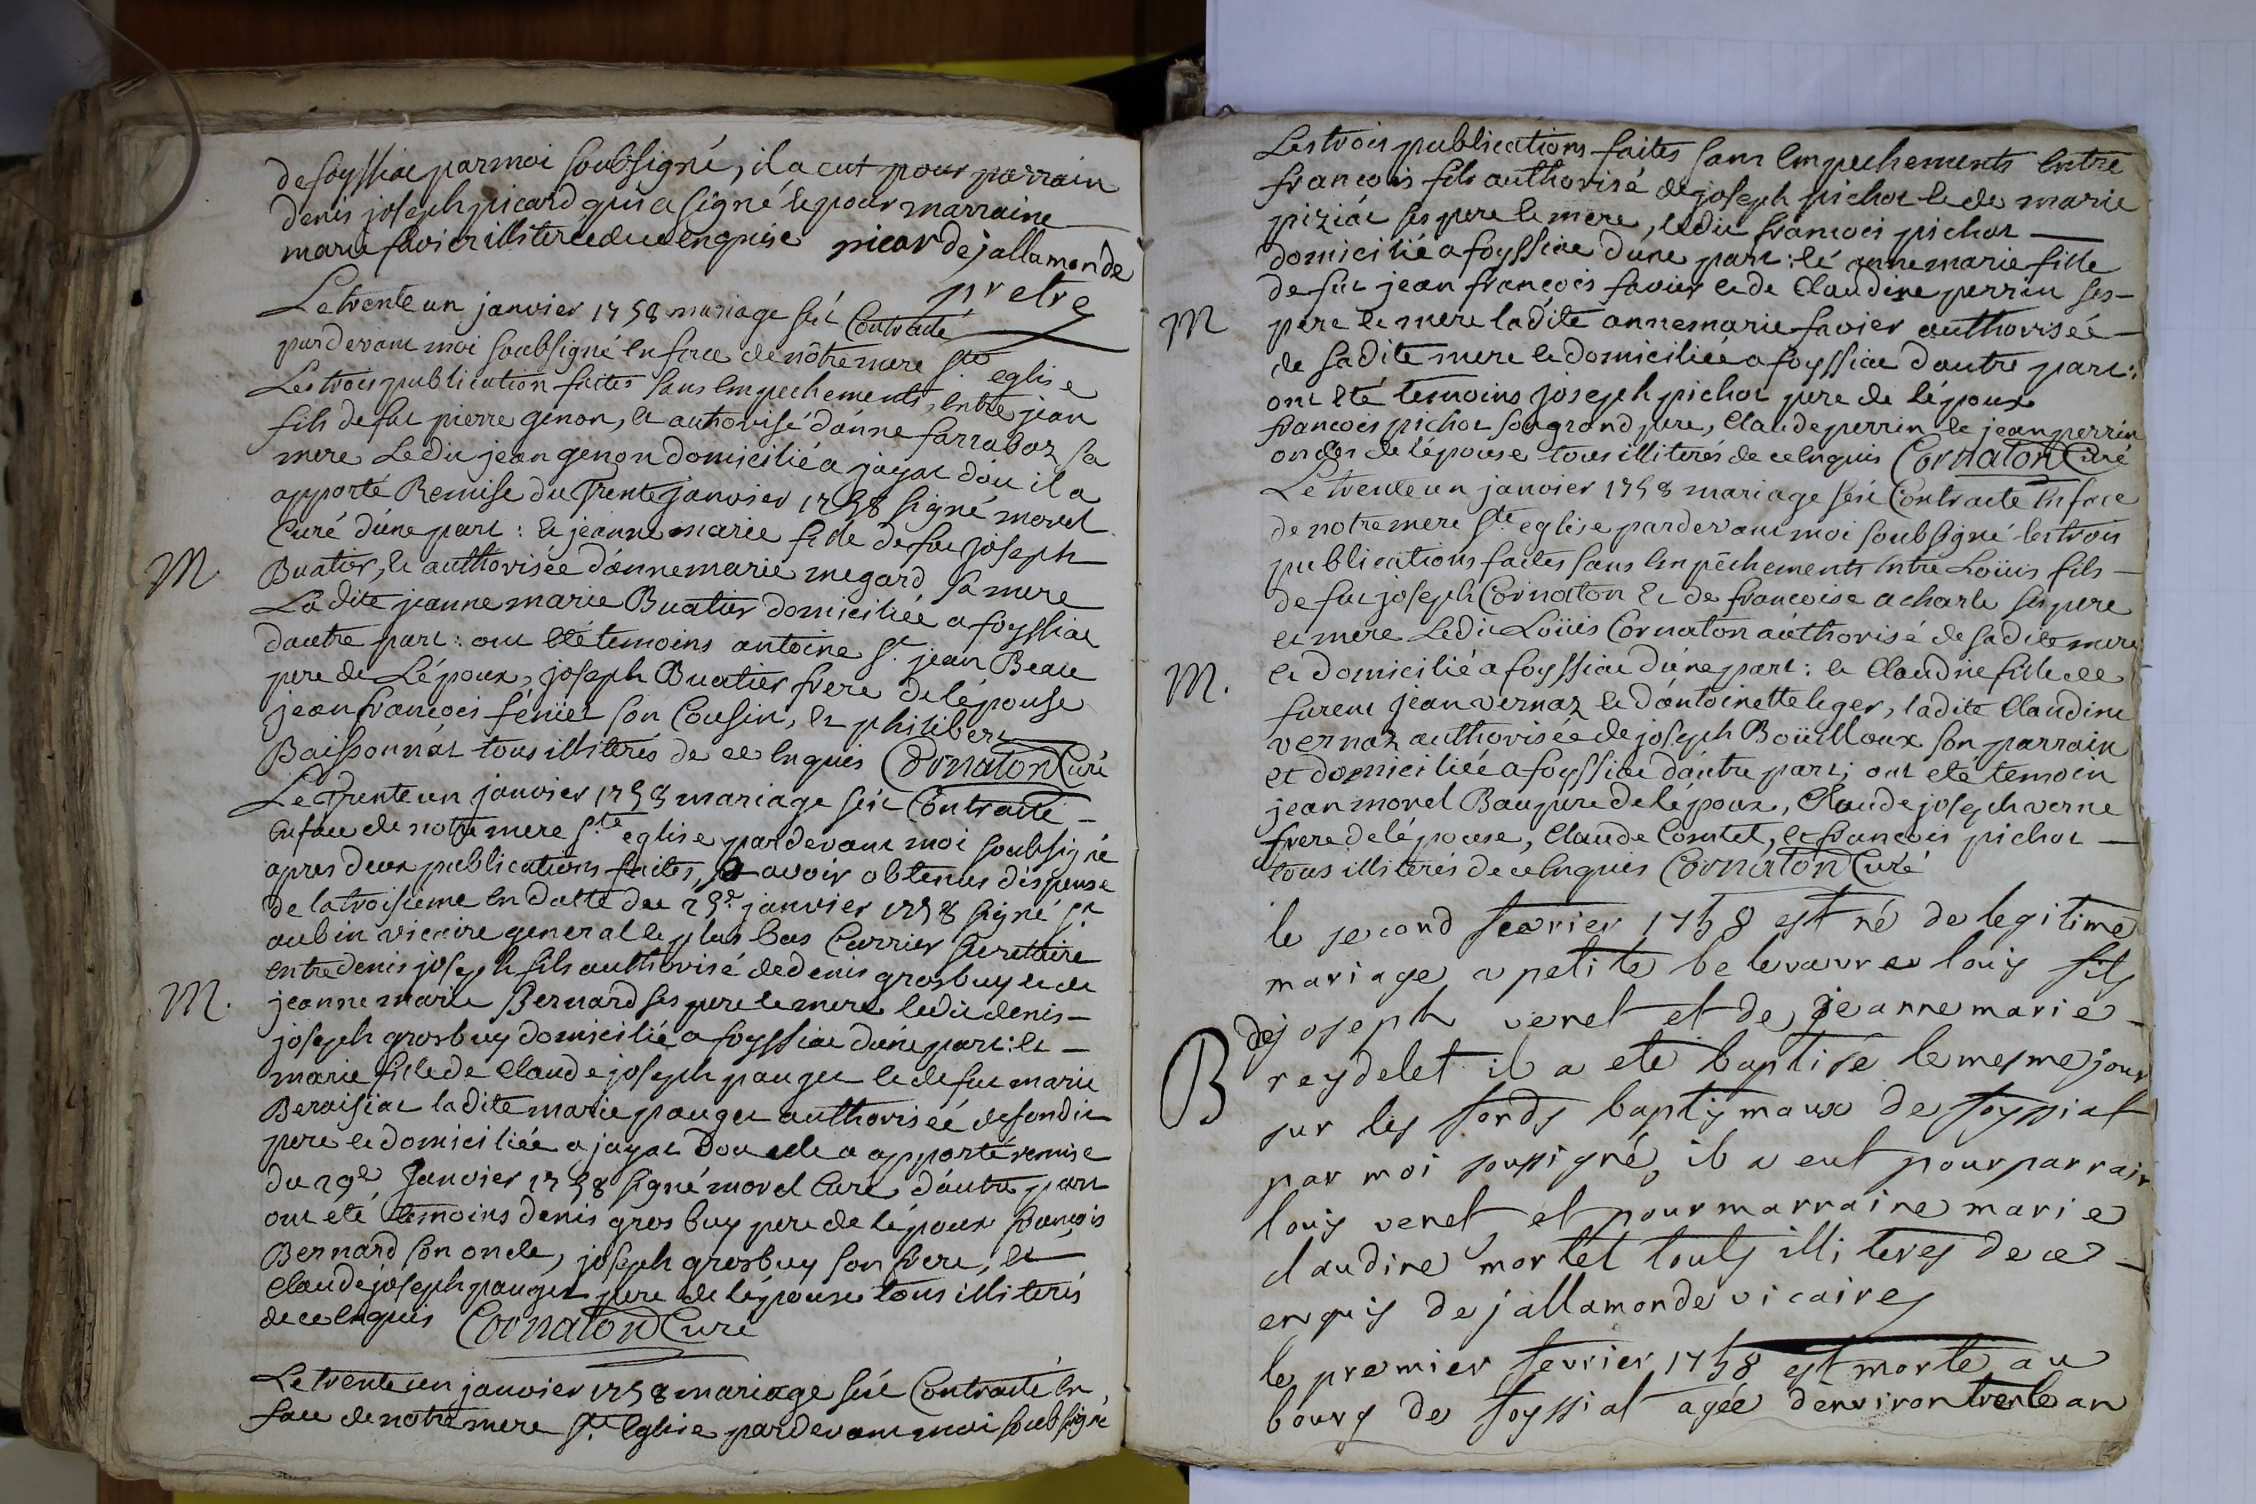 de foyssiac par moi soubsigné, il a eut pour parrain
denis joseph picard qui a signé le pour marraine
marie favier illiterée de ce enquise picar dejallamonde
pretre
Le trente un janvier 1758 mariage seit Contracté
pardevant moi soubsigné en face de nôtre mere Ste eglise
Les trois publication faites sans empechements, entre jean
fils de fut pierre genon, et authorisé d'anne farraboz sa
mere Ledit jean genon domicilié a jayat d'ou il a
apporté Remise du Trente janvier 1758 signé morel
Curé d'une part : et jeanne marie fille de fut joseph
M. Buatier, et authorisée d'anne marie megard sa mere
Ladite jeanne marie Buatier domiciliée a foyssiat
d'autre part : ont eté temoins antoine St jean Beau
pere de L'époux, joseph Buatier frere de l'épouse
jean francois son Cousin, et philibert
Baissonnat tous illiterés de ce enquis Cornaton Curé
Le Trente un janvier 1758 mariage seit Contracté
en face de notre mere Ste eglise pardevant moi soubsigné
apres deux publications faites, avoir obtenus dispense
de la troisieme en datte du 25e janvier 1758 signé St
aubin vicaire general et plus bas Currier secretaire
entre denis joseph fils authorisé de denis grosbuy et de
M. jeanne marie Bernard ses pere et mere ledit denis
joseph grosbuy domicilié a foyssiat d'une part : et
marie fille de Claude joseph pauget et de fut marie
Beraisiat ladite marie pauget authoriseé de sondit
pere et domiciliée a jayat d'ou elle a apporté remise
du 29e Janvier 1758 signé morel Curé d'autre part
ont eté temoins denis grosbuy pere de l'époux francois
Bernard son oncle, joseph grosbuy son frere, et
Claude joseph pauget pere de l'épouse tous illiterés
de ce enquis Cornaton Curé
Le trente un janvier 1758 mariage seit Contracté en
face de notre mere Ste Eglise pardevant moi soubsigné
Les trois publications faites sans empechements entre
francois fils authorisé de joseph pichot et de marie
piziat ses pere et mere, ledit francois pichot
domicilié a foyssiat d'une part : et anne marie fille
de fut jean francois favier et de Claudine perrin ses
M pere et mere ladite anne marie favier authorisée
de sadite mere et domiciliée a foyssiat d'autre part :
ont eté temoins joseph pichot pere de l'époux
francois pichot son grand pere, Claude perrin et jean perrin
oncles de l'épouse tous illiterés de ce enquis Cornaton Curé
Le trente un janvier 1758 mariage seit Contracté en face
de notre mere Ste eglise pardevant moi soubsigné les trois
publications faites sans empêchements entre Loüis fils
de fut joseph Cornaton et de francoise acharle ses pere
et mere Ledit Loüis Cornaton authorisé de sadite mere
M. et domicilié a foyssiat d'une part : et Claudine fille de
furent jean vernaz et d'antoinette leger, ladite Claudine
vernaz authorisée de joseph Boüilloux son parrain
et domiciliée a foyssiat d'autre part ; ont eté temoin
jean morel Beaupere de l'époux, Claude joseph verne
frere de l'épouse, Claude Comtet, et francois pichot
tous illiterés de ce enquis Cornaton Curé
le second fevrier 1758 est né de legitime
mariage a petite belevavre louis fils
B de joseph venet et de jeanne marie
reydelet il a eté baptisé le mesme jour
sur les fonds baptismaux de foyssiat
par moi soussigné, il a eut pour parrain
louis venet et pour marraine marie
claudine mortel touts illiteres de ce
enquis dejallamonde vicaire
le premier fevrier 1758 est morte au
bourg de foyssiat agée d'environ trente an